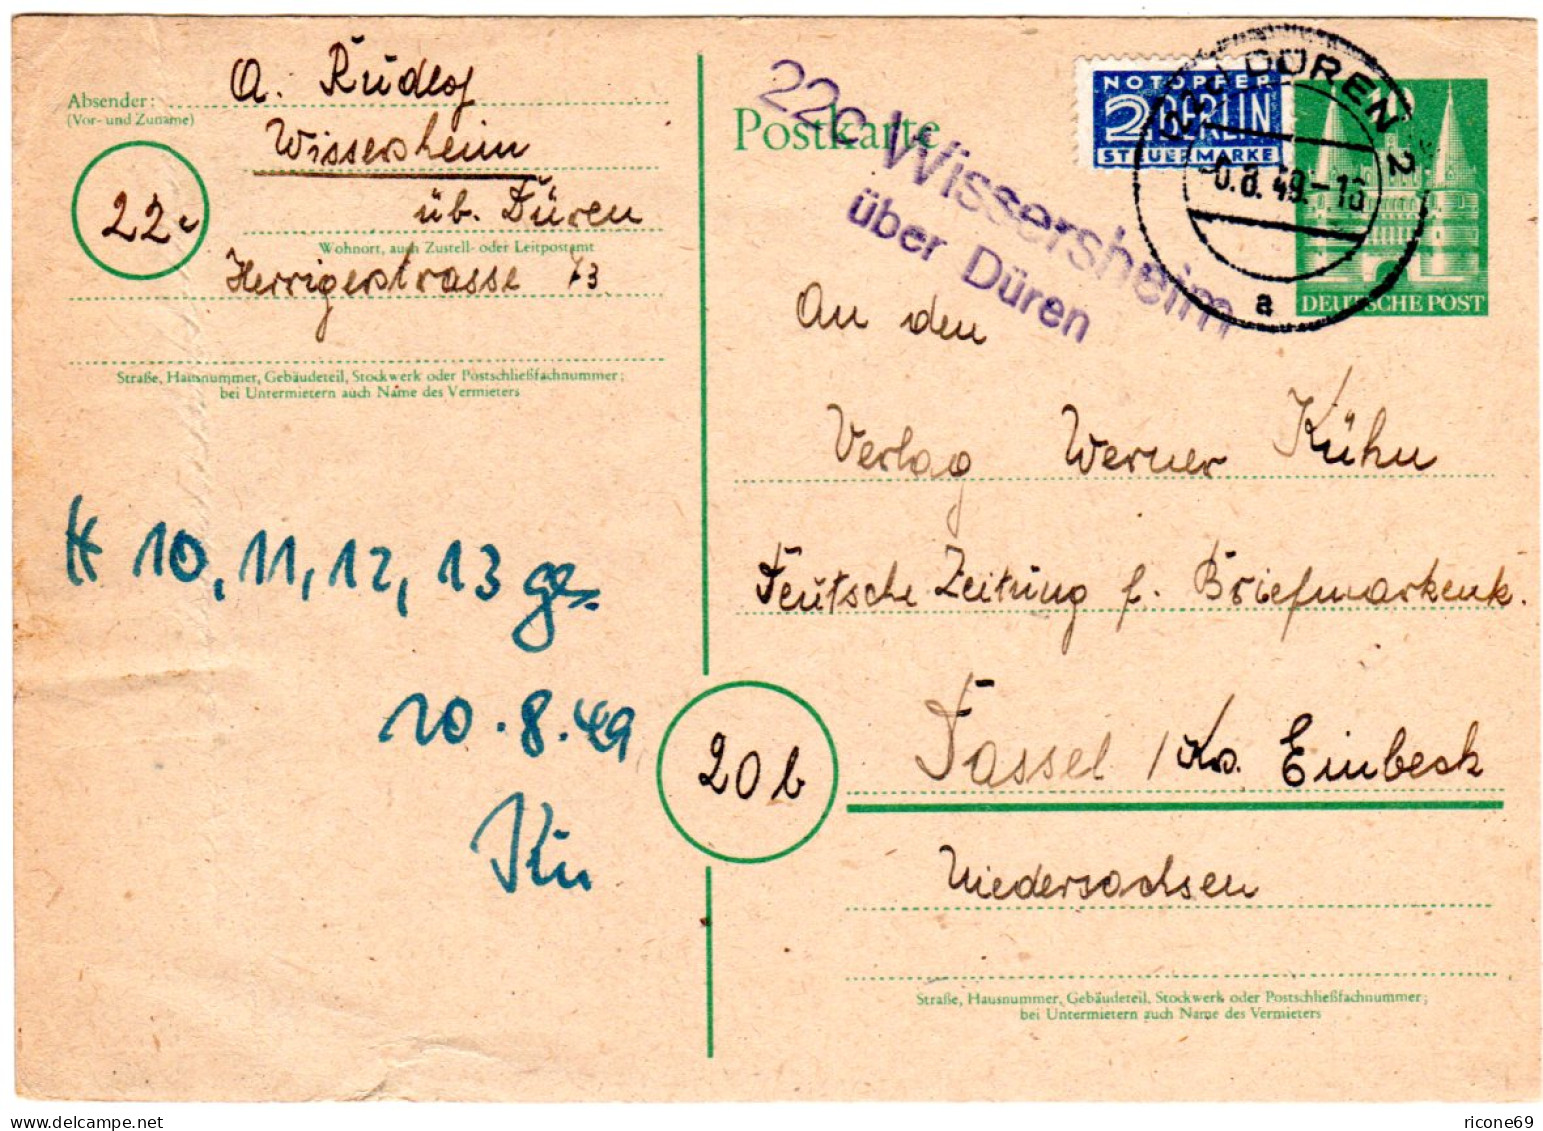 Absender:
(Vor- und Zuname)
A. Rudlof
Wissersheim
22c
üb. Düren
Wohnort, auch Zustell- oder Leitpostamt
Herrigerstrasse 73
Straße, Hausnummer, Gebäudeteil, Stockwerk oder Postschließfachnummer;
bei Untermietern auch Name des Vermieters
H 10, 11, 12, 13 ge.
10.8.49
Kü
Postkarte
22c Wissersheim
über Düren
NOTOPFER
2 BERLIN
STEUERMARKE
(22c) DÜREN 2
.8.49.-16
a
10
DEUTSCHE POST
An den
Verlag Werner Kühn
Deutsche Zeitung f. Briefmarkenk.
20b
Dassel / Krs. Einbeck
Niedersachsen
Straße, Hausnummer, Gebäudeteil, Stockwerk oder Postschließfachnummer;
bei Untermietern auch Name des Vermieters
delcampe.net
ricone69